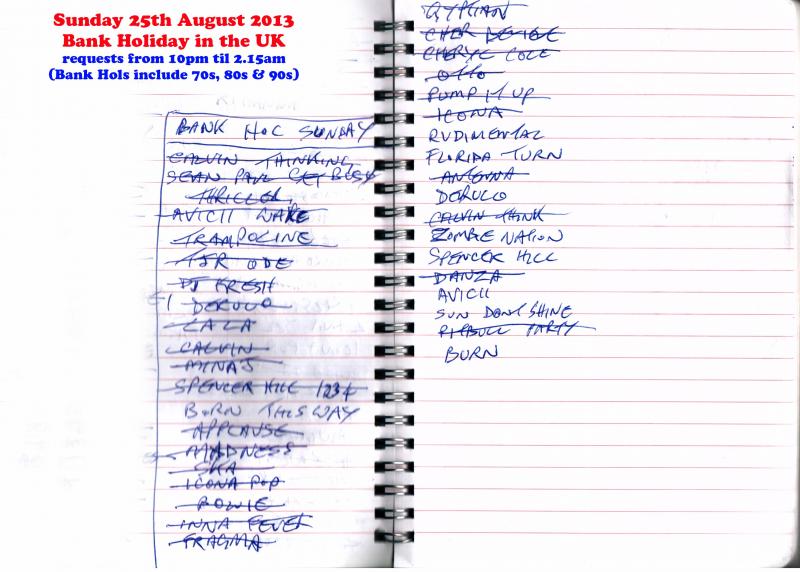 Sunday 25th August 2013
Bank Holiday in the UK
requests from 10pm til 2.15am
(Bank Hols include 70s, 80s & 90s)
BANK HOL SUNDAY
CALVIN THINKING
SEAN PAUL GET BUSY
THRILLER
AVICII WAKE
TRAMPOLINE
TJR ODE
DJ FRESH
DERULO
LALA
CALVIN
MINAJ
SPENCER HILL 1234
BORN THIS WAY
APPLAUSE
MADNESS
SKA
ICONA POP
BOWIE
INNA FEVER
FRAGMA
CHER
CHERYL COLE
OTTO
PUMP IT UP
ICONA
RUDIMENTAL
FLORIDA TURN
ANTENNA
DERULO
CALVIN THINK
ZOMBIE NATION
SPENCER HILL
DANZA
AVICII
SUN DONT SHINE
PITBULL PARTY
BURN